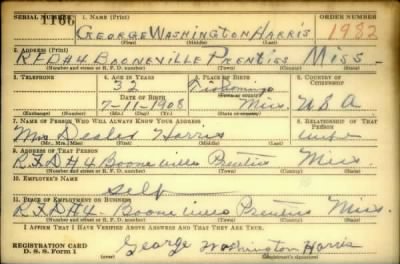 SERIAL NUMBER 1. NAME (Print) ORDER NUMBER
1166 GEORGE WASHINGTON HARRIS 1982
(First) (Middle) (Last)
2. ADDRESS (Print)
R.F.D#4 BOONEVILLE PRENTISS MISS.
(Number and street or R. F. D. number) (Town) (County) (State)
3. TELEPHONE 4. AGE IN YEARS 5. PLACE OF BIRTH 6. COUNTRY OF CITIZENSHIP
32 Tishomingo
DATE OF BIRTH (Town or county)
7-11-1908 Miss. U.S.A.
(Exchange) (Number) (Mo.) (Day) (Yr.) (State or country)
7. NAME OF PERSON WHO WILL ALWAYS KNOW YOUR ADDRESS 8. RELATIONSHIP OF THAT PERSON
Mrs Harris wife
(Mr., Mrs., Miss) (First) (Middle) (Last)
9. ADDRESS OF THAT PERSON
R.F.D#4 Booneville Prentiss Miss.
(Number and street or R. F. D. number) (Town) (County) (State)
10. EMPLOYER'S NAME
Self
11. PLACE OF EMPLOYMENT OR BUSINESS
R.F.D#4 Booneville Prentiss Miss.
(Number and street or R. F. D. number) (Town) (County) (State)
I AFFIRM THAT I HAVE VERIFIED ABOVE ANSWERS AND THAT THEY ARE TRUE.
REGISTRATION CARD
D. S. S. Form 1 George Washington Harris
(Registrant's signature)